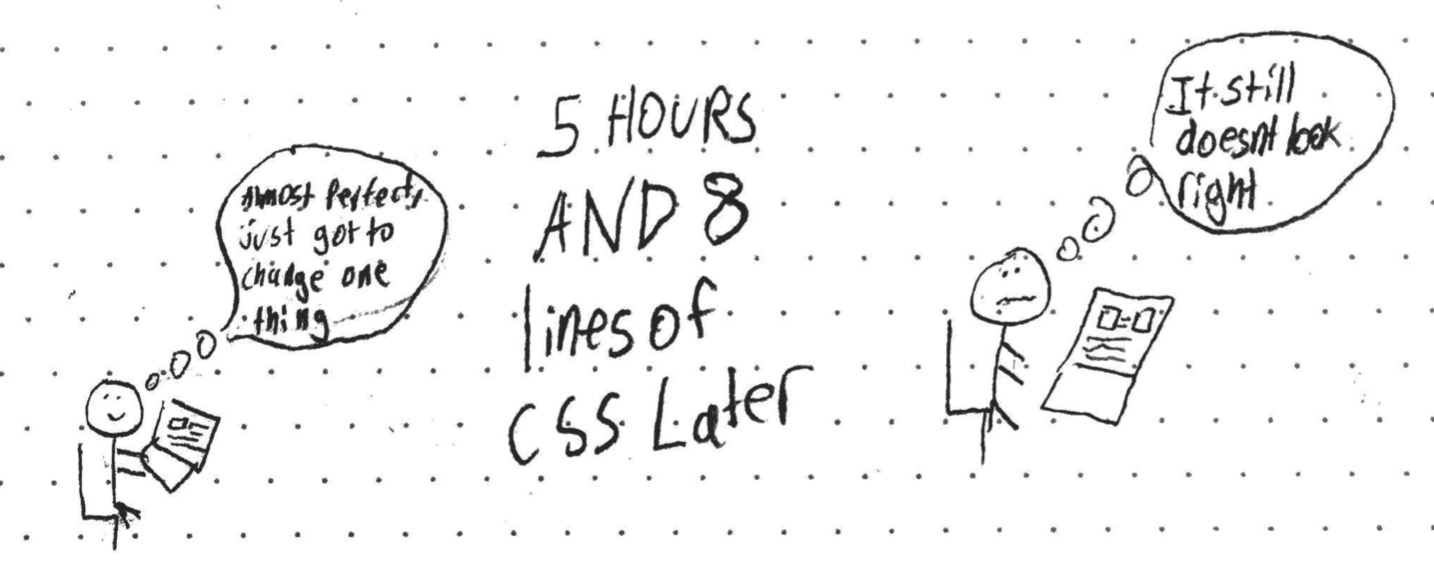 Almost Perfect,
just got to
change one
thing
5 HOURS
AND 8
lines of
CSS Later
It still
doesnt look
right